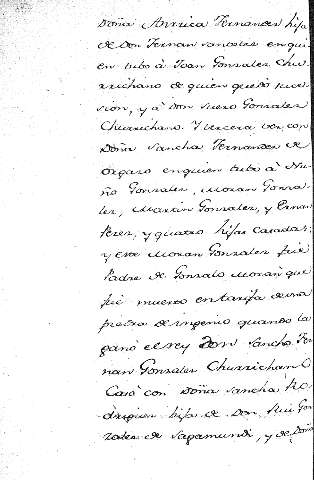 Doña Arrica Fernandez hija
de Don Fernan sanchez en qui
en tubo à Joan Gonzalez Chu
rrichano de quien quedo suce
sion, y à don Suero Gonzalez
Churrichano. Y tercera vez, con
Doña Sancha Fernandez de
Orgazo en quien tubo à Nu
ño Gonzalez, Moran Gonza
lez, Martin Gonzalez, y Ernan
Perez, y quatro hijas casadas;
y este Moran Gonzalez fue
Padre de Gonzalo Moran que
fue muerto en tarifa de una
piedra de ingenio quando la
ganò el rey Don Sancho Fer
nan Gonzalez Churrichano
Casò con Doña Sancha Ro
driguez hija de Don Rui Gon
zalez de Sagamundi, y de Doña